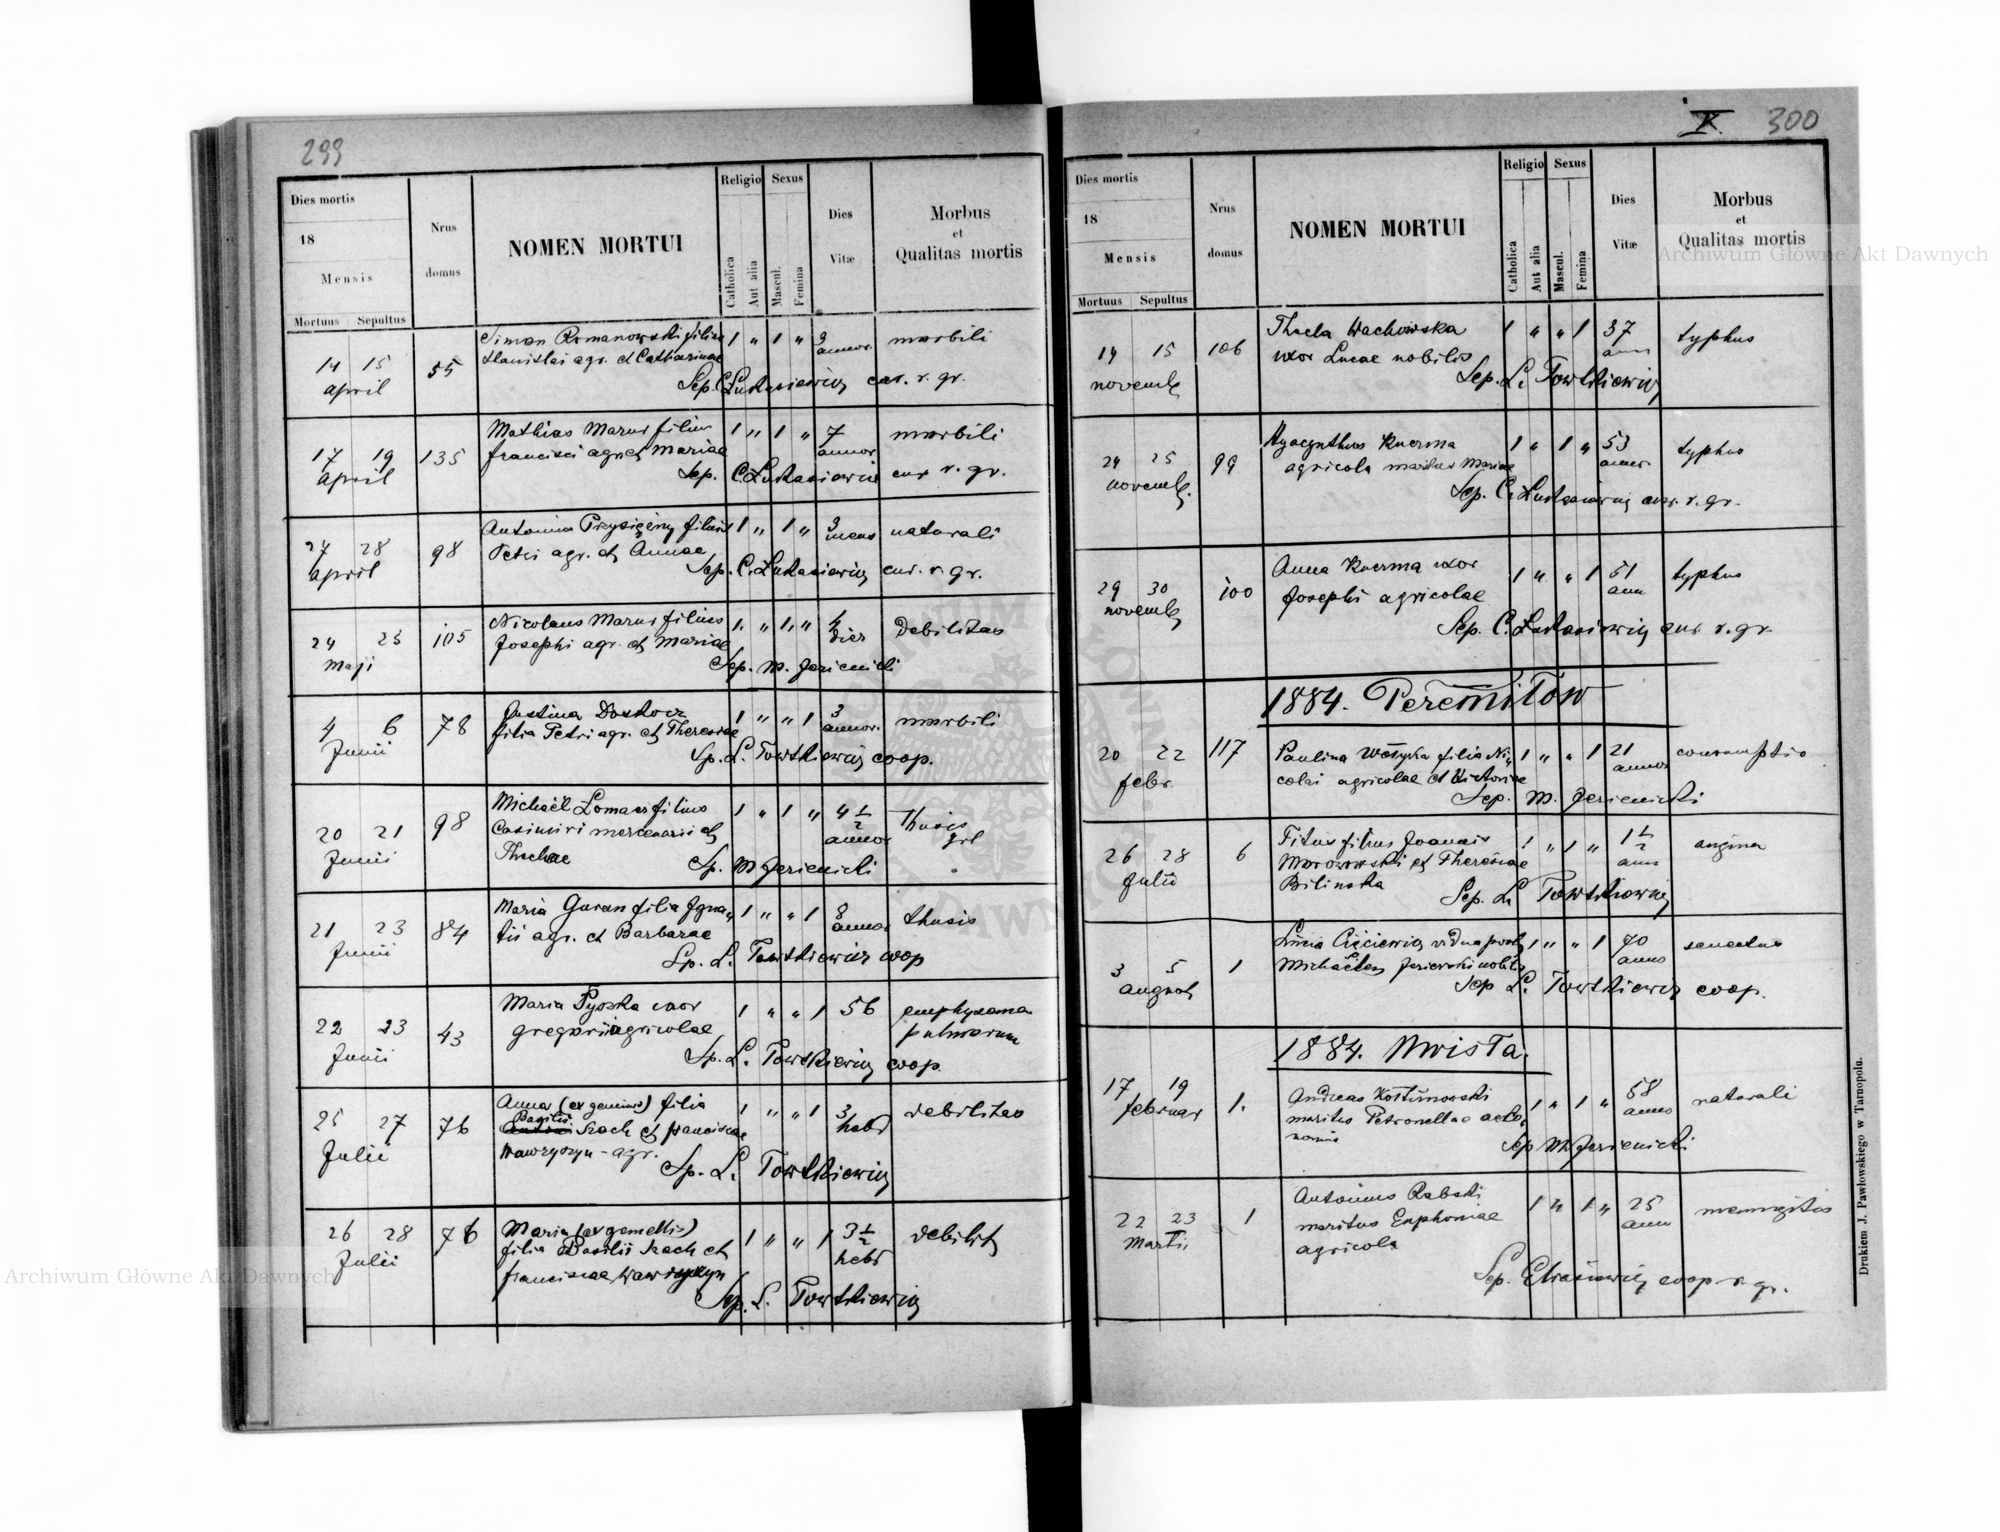 299
Dies mortis
18
Mensis
Mortuus Sepultus
Nrus
domus
NOMEN MORTUI
Religio
Catholica
Aut alia
Sexus
Mascul.
Femina
Dies
Vitæ
Morbus
et
Qualitas mortis
14 15
april
55
Simon Romanowski filius
Stanislai agr. et Catharinae
1 " 1 " 3
annor.
morbili
Sep. C. Łukasiewicz cur. r. gr.
17 19
april
135
Mathias Marus filius
francisci agr. et Mariae
1 " 1 " 7
annor
morbili
Sep. C. Łukasiewicz cur r. gr.
27 28
april
98
Antonius Przysiężny filius
Petri agr. et Annae
1 " 1 " 3
mens
naturali
Sep. C. Łukasiewicz cur. r. gr.
24 25
maji
105
Nicolaus Marus filius
Josephi agr. et Mariae
1. " 1. " 4
dies
debilitas
Sep. M. Jezienicki
4 6
Junii
78
Justina
filia Petri agr. et Theresiae
1 " " 1 3
annor.
morbili
Sp. L. Towtkiewicz coop.
20 21
Junii
98
Michaël filius
Casimiri mercenarii et
Theclae
1 " 1 " 4 1/2
annor
Thusis
Sp. M Jezienicki
21 23
Junii
84
Maria Guran filia Igna-
tii agr. et Barbarae
1 " " 1 8
annor
thusis
Sp. L. Towtkiewicz coop
22 23
Junii
43
Maria uxor
gregorii agricolae
1 " " 1 56
emphysema
pulmorum
Sp. L. Towtkiewicz coop.
25 27
Julii
76
Anna (ex gemins) filia
Basilii
Szach et franciscae
Wawryszyn - agr.
1 " " 1 3
hebd
debilitas
Sp. L. Towtkiewicz
26 28
Julii
76
Maria (ex gemellis)
filia Basilii Szach et
franciscae Wawryszyn
1 " " 1 3 1/2
hebd
debilit
Sep. L. Towtkiewicz
X. 300
Dies mortis
18
Mensis
Mortuus Sepultus
Nrus
domus
NOMEN MORTUI
Religio
Catholica
Aut alia
Sexus
Mascul.
Femina
Dies
Vitæ
Morbus
et
Qualitas mortis
14 15
novemb
106
Thecla Wachowska
uxor Lucae nobilis
1 " " 1 37
ann
typhus
Sep. L. Towtkiewicz
24 25
novemb.
99
Hyacynthus Kuczma
agricola maritus Mariae
1 " 1 " 53
annor
typhus
Sep. C. Łukasiewicz cur. r. gr.
29 30
novemb
100
Anna Kuczma uxor
Josephi agricolae
1 " " 1 51
ann
typhus
Sep. C. Łukasiewicz cur. r. gr.
1884. Peremiłow
20 22
febr.
117
Paulina filia Ni-
colai agricolae et Victoriae
1 " " 1 21
annor
consumptio
Sep. M. Jezienicki
26 28
Julii
6
Titus filius Joannis
Morozowski et Theresiae
Bilinska
1 " 1 " 1 1/2
ann
angina
Sep. L. Towtkiewicz
3 5
august
1
Lucia vidua post
Michaëlem Jezierski nobilis
1 " " 1 70
annor
senectus
Sep L. Towtkiewicz coop.
1884. Mwista.
17 19
februar
1.
Andreas
maritus Petronellae aeco-
nomus
1 " 1 " 58
annor
naturali
Sep M. Jezienicki
22 23
Martii
1
Antonius Rabski
maritus Euphemiae
agricola
1 " 1 " 25
ann
meningitis
Sep. coop r. gr.
Drukiem J. Pawłowskiego w Tarnopolu.
Archiwum Główne Akt Dawnych
Archiwum Główne Akt Dawnych